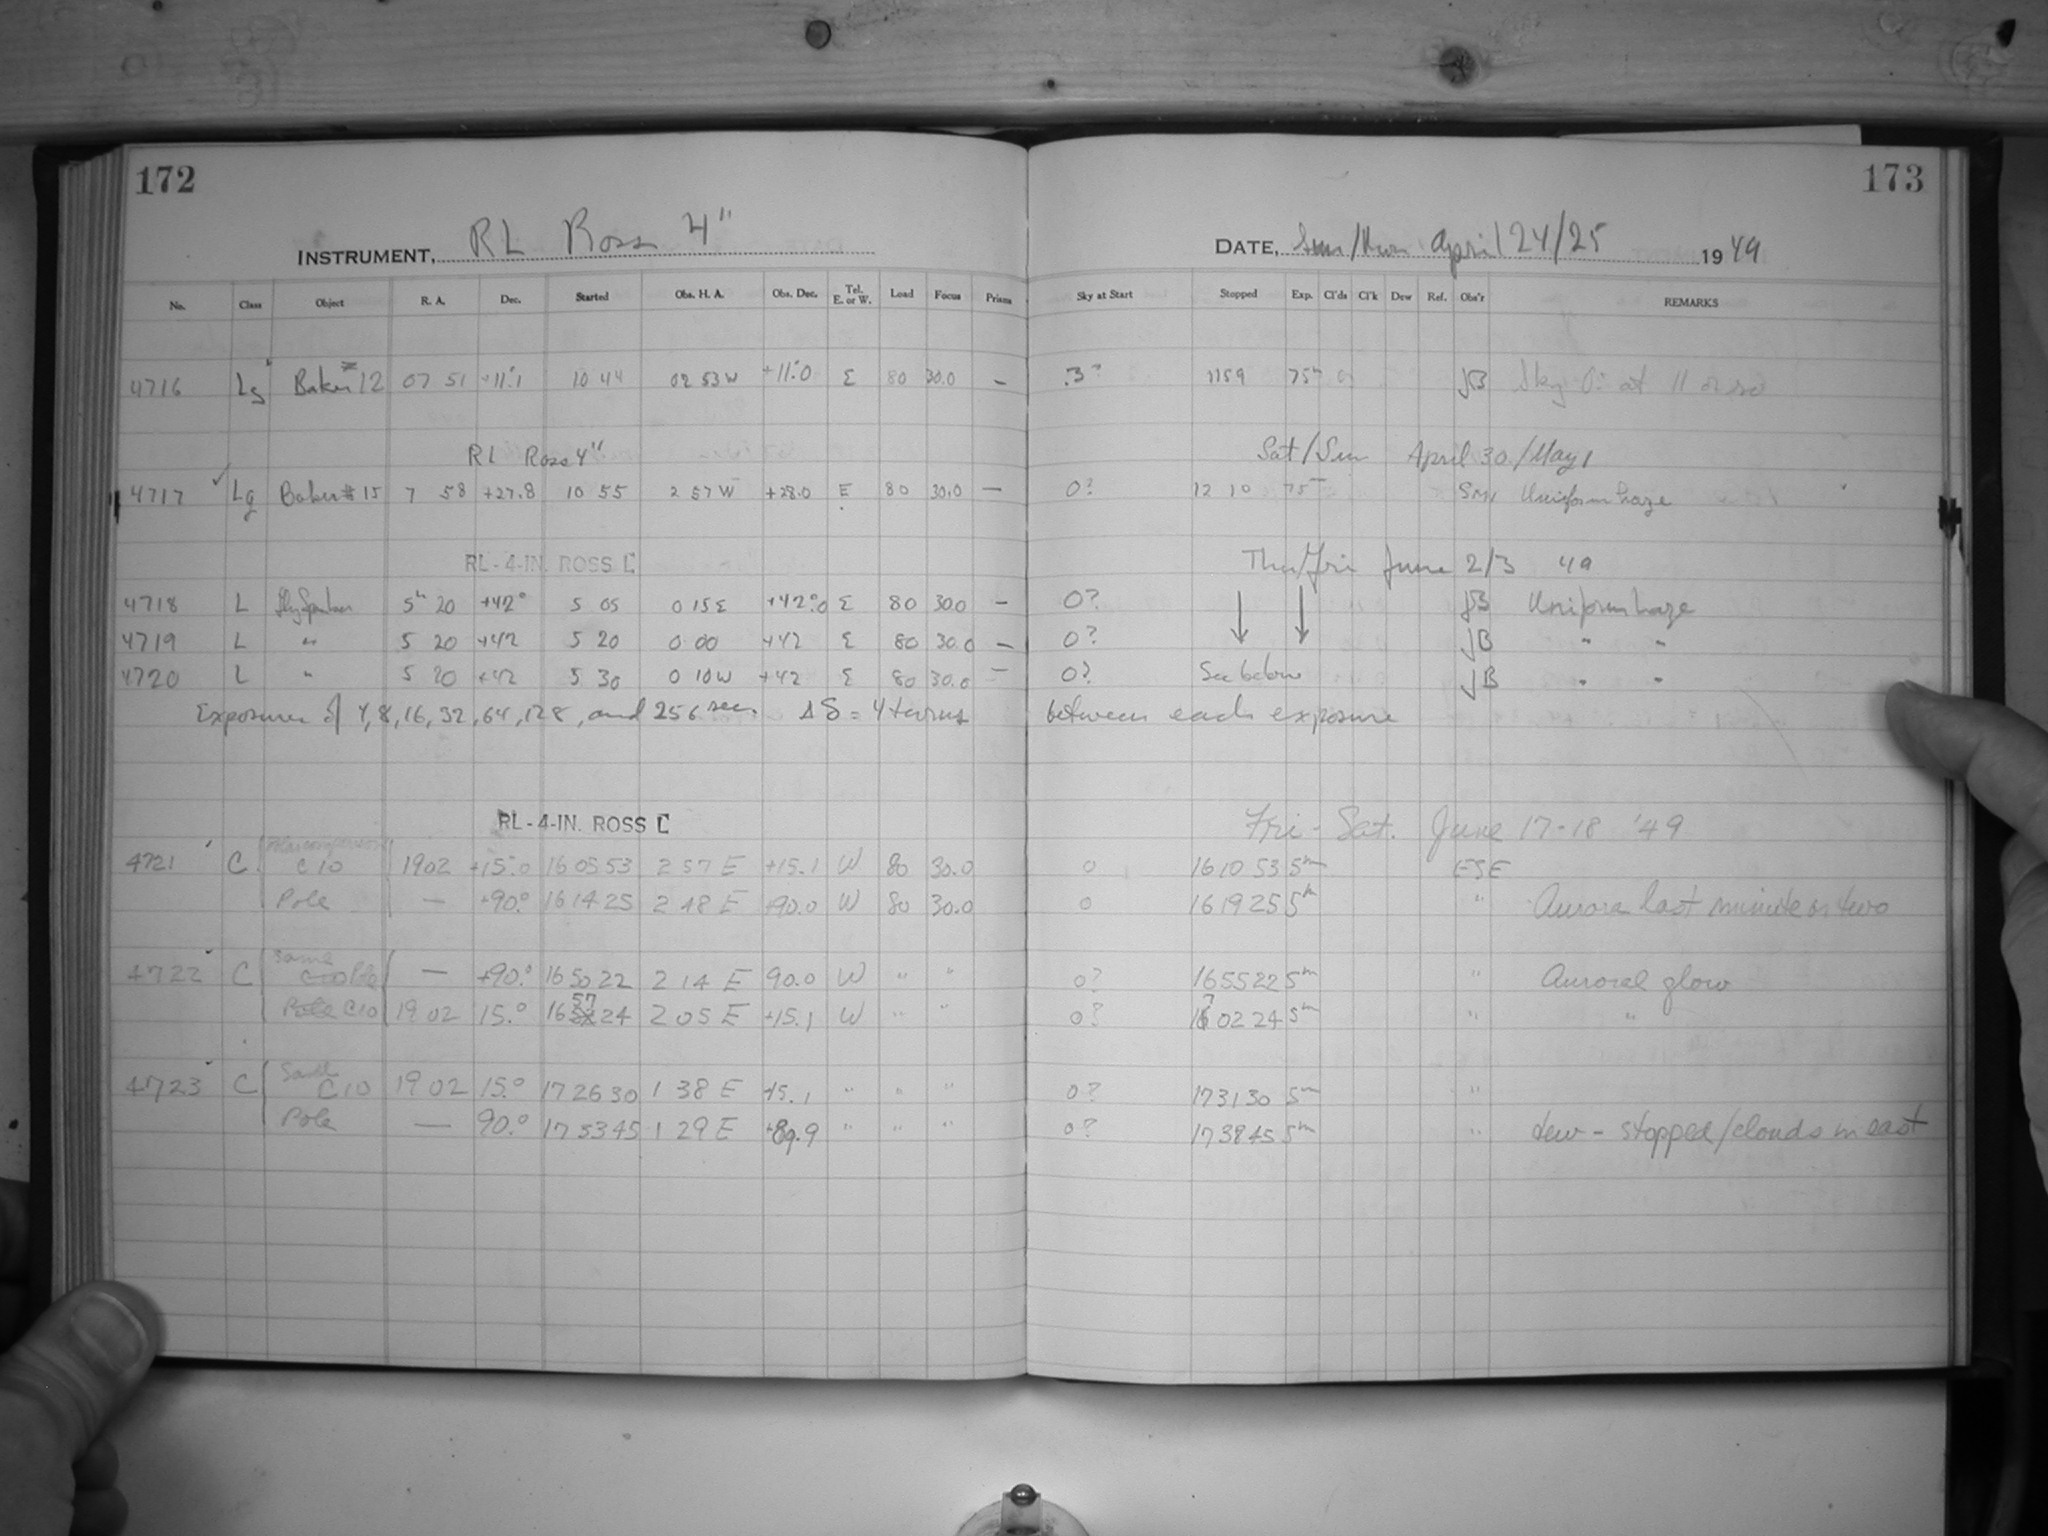 172
173
INSTRUMENT, RL Ross 4"
DATE, Sun/Mon April 24/25 1949
No. Class Object R. A. Dec. Started Obs. H. A. Obs. Dec. Tel. E. or W. Load Focus Prism Sky at Start Stopped Exp. Cl'ds Cl'k Dew Ref. Obs'r REMARKS
4716 Lg Baker #12 07 51 +11.1 10 44 02 53 W +11.0 E 80 30.0 — .3? 1159 75m JB Sky 0? at 11 or so
RL Ross 4" Sat/Sun April 30/May 1
4717 Lg Baker #15 7 58 +27.8 10 55 2 57 W +28.0 E 80 30.0 — 0? 12 10 75 Uniform haze
RL-4-IN. ROSS C Thu/Fri June 2/3 49
4718 L 5h 20 +42° 5 05 0 15 E +42.0 E 80 30.0 — 0? ↓ ↓ JB Uniform haze
4719 L " 5 20 +42 5 20 0 00 +42 E 80 30.0 — 0? JB " "
4720 L " 5 20 +42 5 30 0 10 W +42 E 80 30.0 — 0? See below JB " "
Exposures of 4, 8, 16, 32, 64, 128, and 256 sec. Δδ = 4 turns between each exposure
RL-4-IN. ROSS C Fri - Sat. June 17-18 '49
4721 C C10 1902 +15.0 16 05 53 2 57 E +15.1 W 80 30.0 0 16 10 53 5m ESE
Pole — +90.° 16 14 25 2 48 E +90.0 W 80 30.0 0 16 19 25 5m " Aurora last minute or two
4722 C Same Pole — +90.° 16 50 22 2 14 E 90.0 W " " 0? 16 55 22 5m " Auroral glow
C10 19 02 15.° 16 57 24 2 05 E +15.1 W " " 0? 17 02 24 5m " "
4723 C Same C10 19 02 15.° 17 26 30 1 38 E +15.1 " " " 0? 17 31 30 5m "
Pole — 90.° 17 33 45 1 29 E +89.9 " " " 0? 17 38 45 5m " dew - stopped/clouds in east